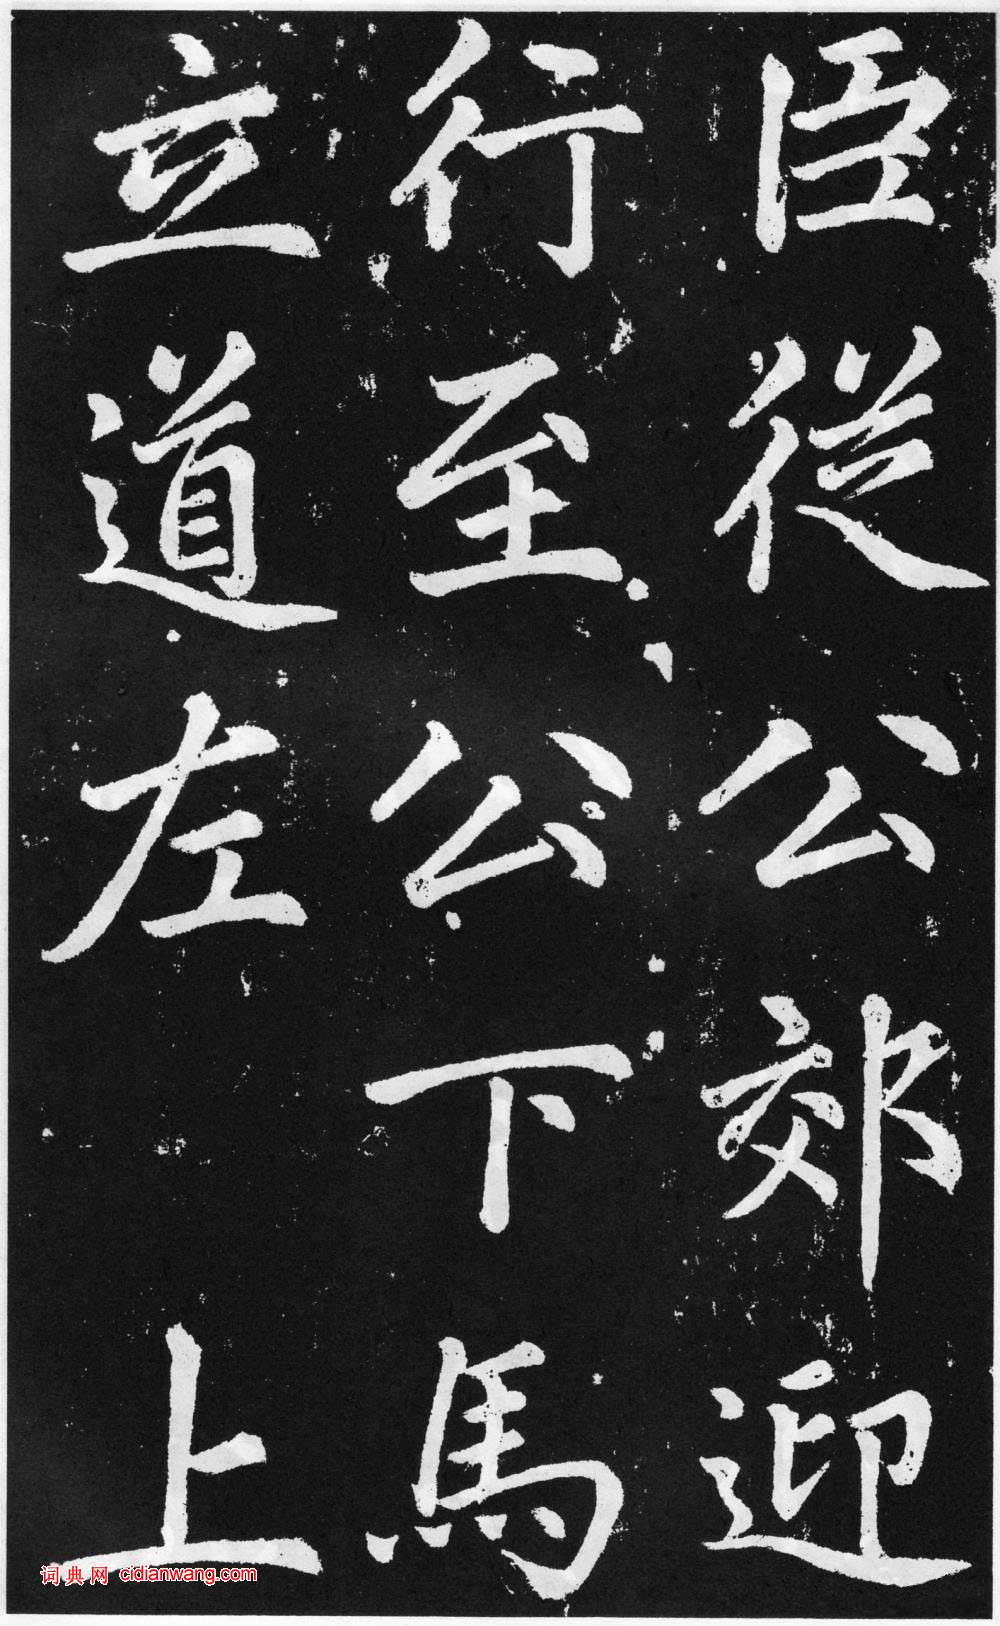 臣從公郊迎
行至公下馬
立道左 上
词典网 cidianwang.com